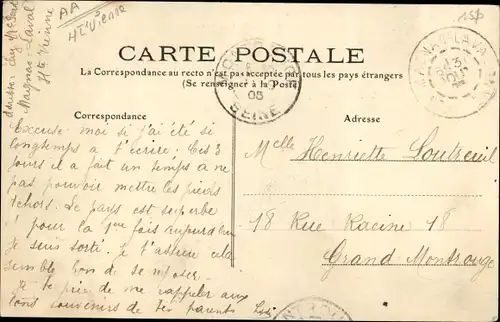 AA
Hte Vienne
15p
Magnac-Laval
Hte Vienne
CARTE POSTALE
La Correspondance au recto n'est pas acceptée par tous les pays étrangers
(Se renseigner à la Poste)
05
SEINE
Correspondance
Adresse
Excuse moi si j'ai été si
longtemps a t'ecrire. Ces 3
jours il a fait un temps a ne
pas pouvoir mettre les pieds
dehors. Le pays est superbe
pour la 1ere fois aujourd'hui
je suis sorti. Je t'assure cela
semble bon de se reposer.
Je te prie de me rappeler aux
bons souvenirs de tes parents
Melle Henriette Loutreuil
18 Rue Racine 18
Grand Montrouge